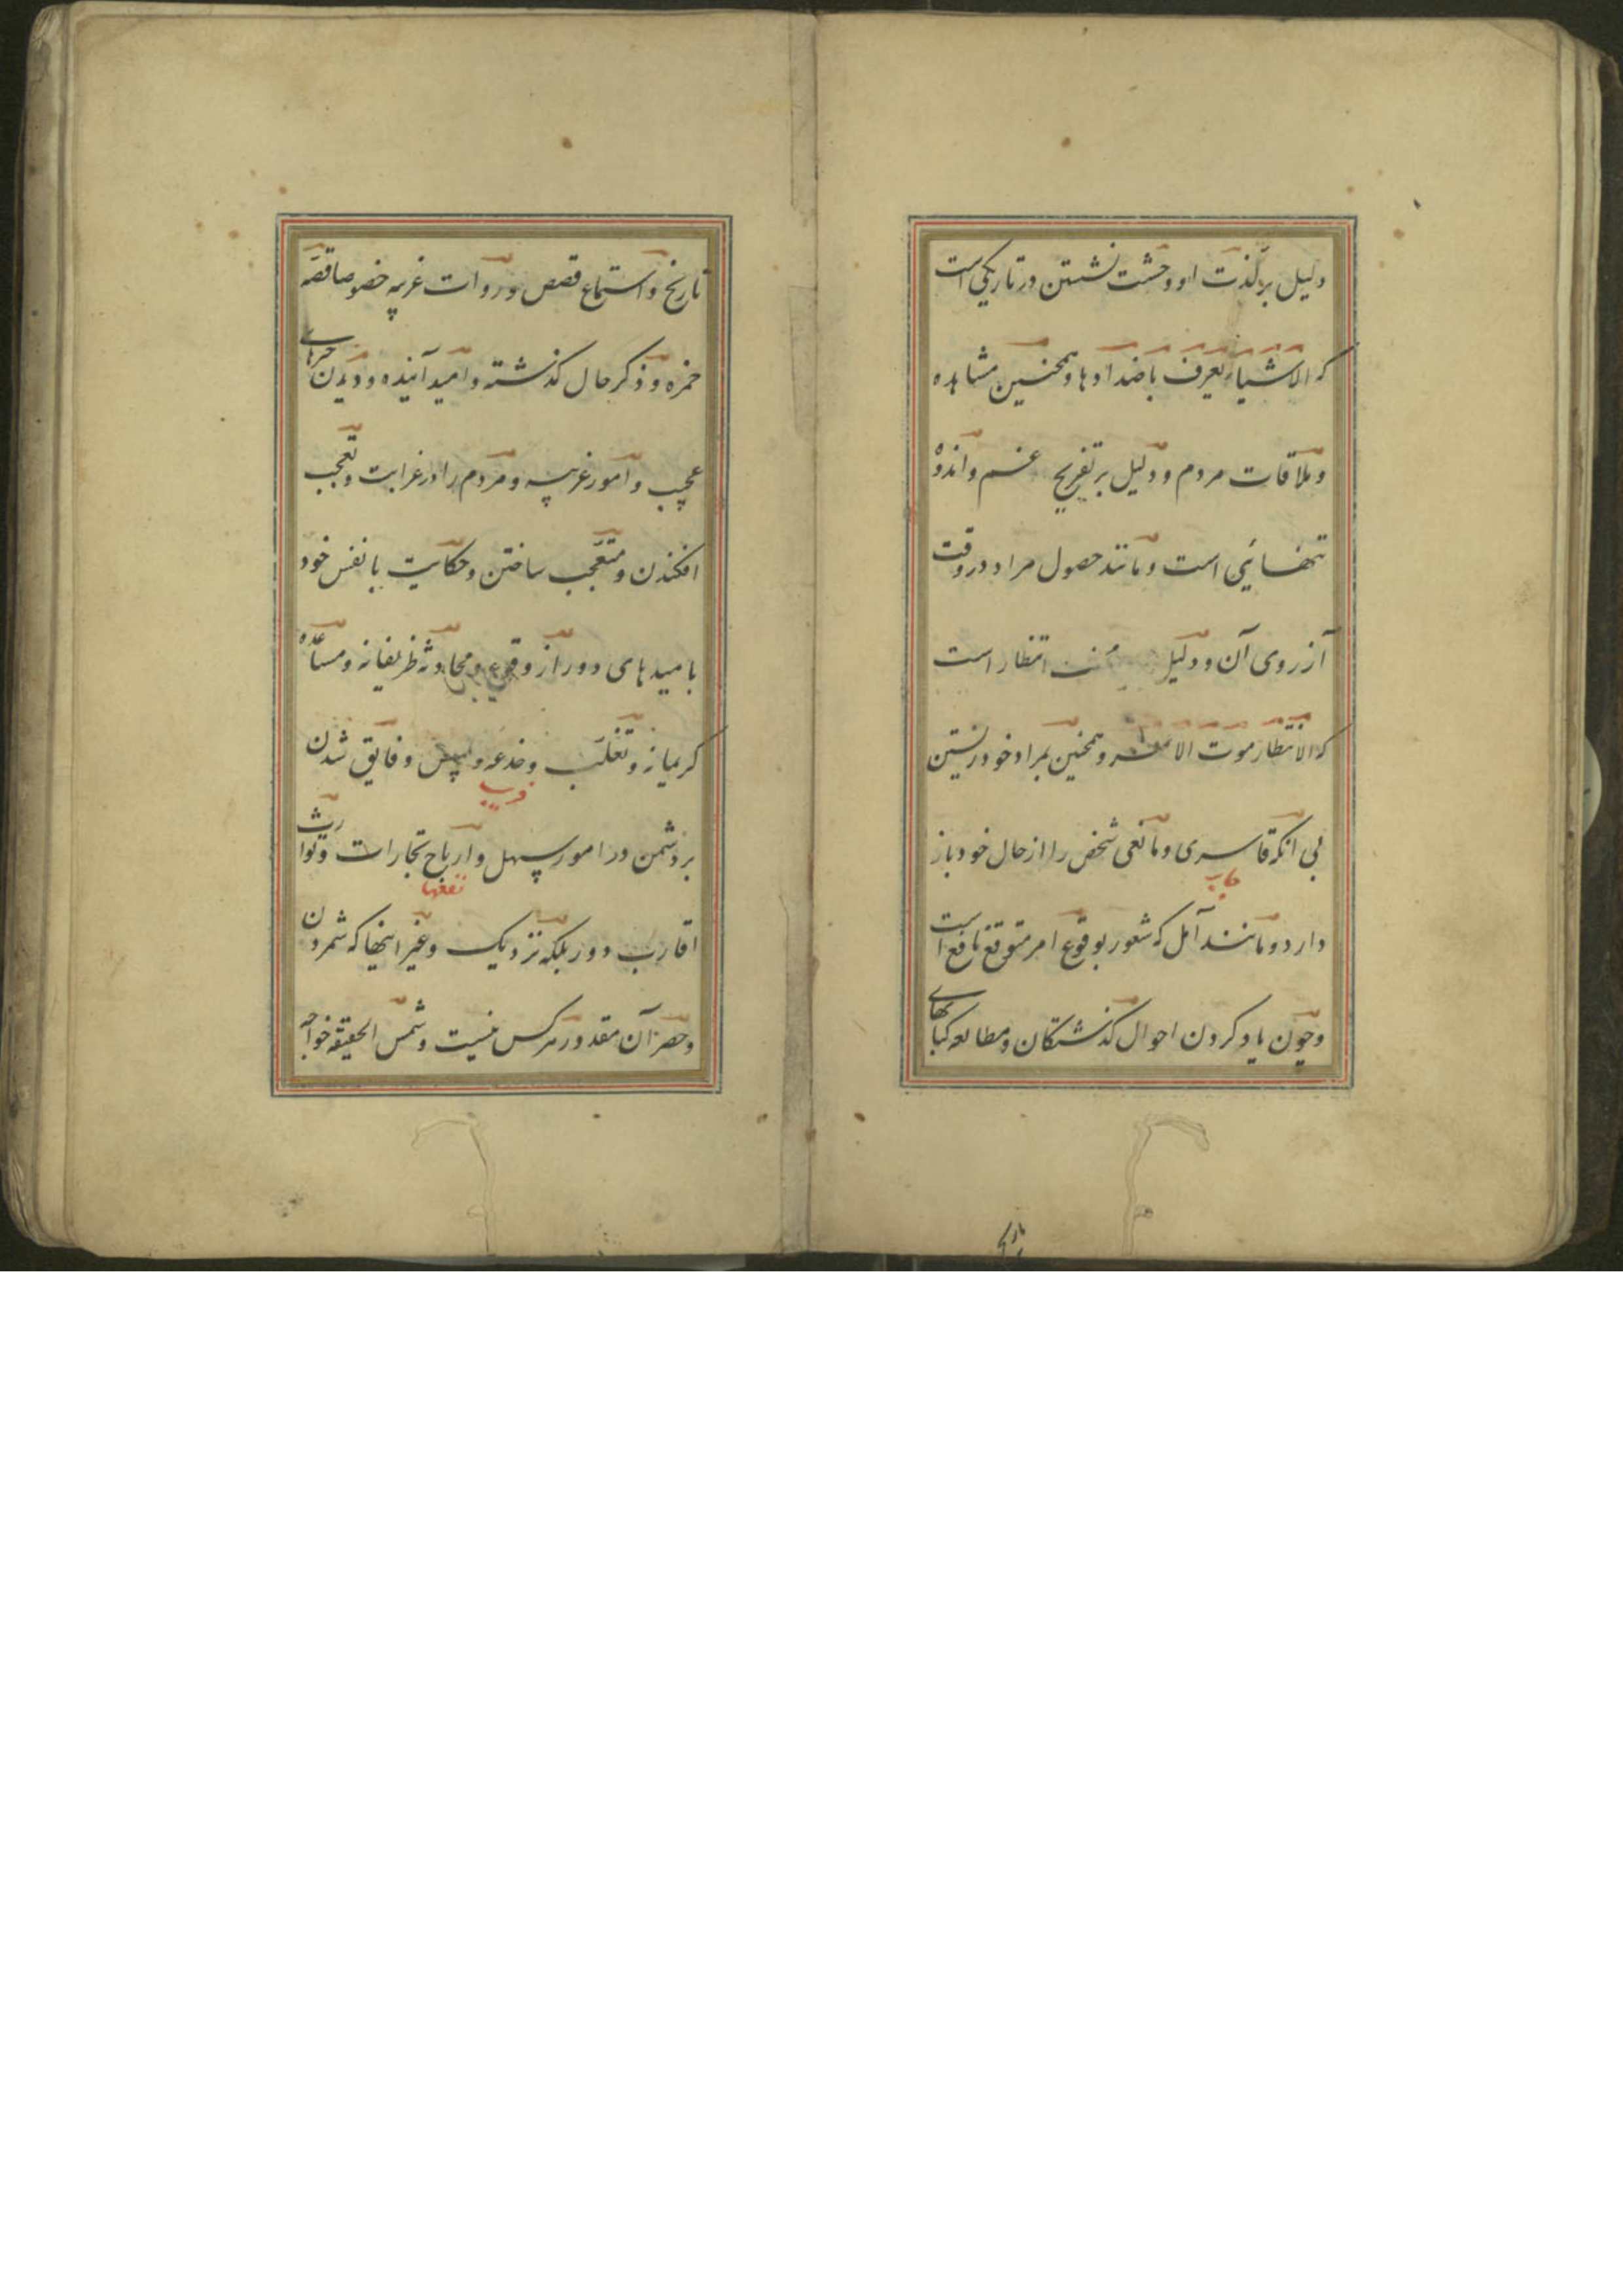 دلیل بر لذت او وحشت نشستن در تاریکی است
که الاشیاء یعرف باضدادها و همچنین مشاهده
و ملاقات مردم و دلیل بر تفریح غم و اندوه
تنهایی است و مانند حصول مراد در وقت
آرزوی آن و دلیل انتظار است
که الانتظار موت الاحمر و همچنین بمراد خود زیستن
بی آنکه قاسری و مانعی شخص را از حال خود باز
دارد و مانند آمل که شعور بوقوع امر متوقع نافع است
و چون یاد کردن احوال گذشتگان و مطالعه کتابهای
تاریخ
تاریخ و استماع قصص و روات غریبه خصوصا قصه
حمزه و ذکر حال گذشته و امید آینده و دیدن چیزهای
عجیب و امور غریبه و مردم را در غرابت و تعجب
افکندن و متعجب ساختن و حکایت با نفس خود
بامیدهای دور از وقوع و محادثه ظریفانه و مساعده
کریمانه و تغلب و خدعه و و فایق شدن
فریب
بر دشمن در امور سهل و ارباح تجارات و توارث
نفعها
اقارب دور بلکه نزدیک و غیر اینها که شمردن
و حصر آن مقدور هر کس نیست و شمس الحقیقه خواجه